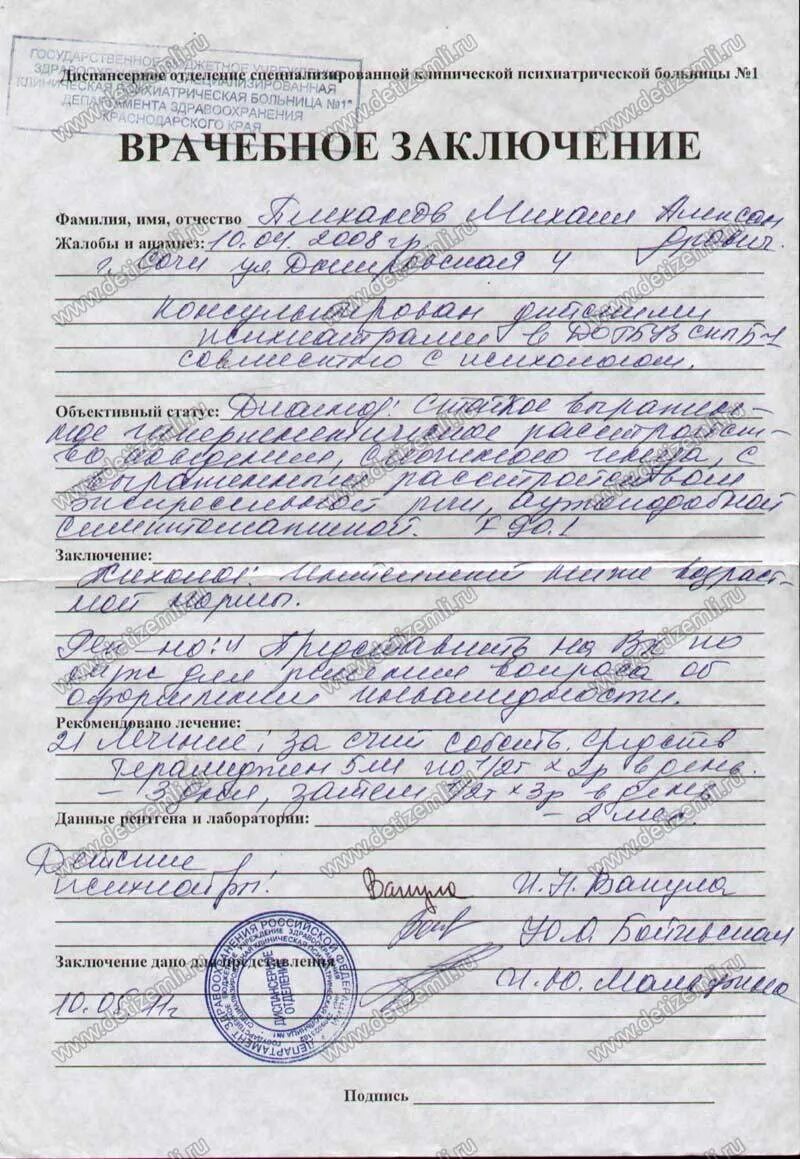 ГОСУДАРСТВЕННОЕ БЮДЖЕТНОЕ УЧРЕЖДЕНИЕ
ЗДРАВООХРАНЕНИЯ "СПЕЦИАЛИЗИРОВАННАЯ
КЛИНИЧЕСКАЯ ПСИХИАТРИЧЕСКАЯ БОЛЬНИЦА №1"
ДЕПАРТАМЕНТА ЗДРАВООХРАНЕНИЯ
КРАСНОДАРСКОГО КРАЯ
Диспансерное отделение специализированной клинической психиатрической больницы №1
ВРАЧЕБНОЕ ЗАКЛЮЧЕНИЕ
Фамилия, имя, отчество Михаил Алексан
Жалобы и анамнез: 10.04.2008 гр дрович.
г. Сочи ул. 4
консультирован детскими
психиатрами в
совместно с психологом.
Объективный статус: Диагноз: Стойкое выражен-
ное гиперкинетическое расстройст-
во поведения, сложного генеза, с
выраженным расстройством
экспрессивной речи, аутоподобной
симптоматикой. F 90.1
Заключение:
Психолог: Интеллект ниже возраст-
ной нормы.
Рек-но: 1) Представить на ВК по
м/ж для решения вопроса об
оформлении инвалидности.
Рекомендовано лечение:
2) Лечение: за счет собств. средств
5 мг по 1/2т х 2р в день
- 3 дня, затем 1/2т х 3р в день
Данные рентгена и лаборатории: - 2 мес.
Детские
психиатры: И.Н. Вакула
Ю.А.
И.Ю.
Заключение дано для представления
10.05.11г
ДИСПАНСЕРНОЕ
ОТДЕЛЕНИЕ
Подпись
www.detizemli.ru